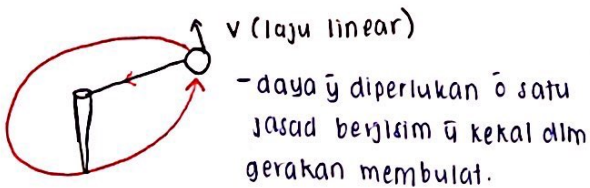 v (laju linear)
- daya ȳ diperlukan ō satu
jasad berjisim ū kekal dlm
gerakan membulat.